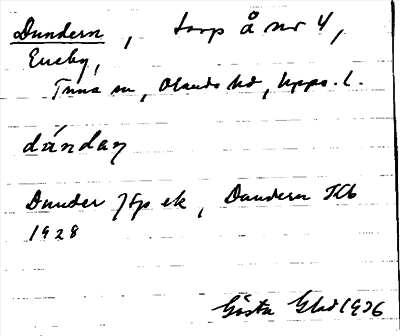 Dundern, torp å nr 4,
Eneby,
Tuna sn, Olands hd, Upps. l.
dándaṇ
Dunder Jfp ek, Dundern Hlb
1928
Gösta Glad 1936